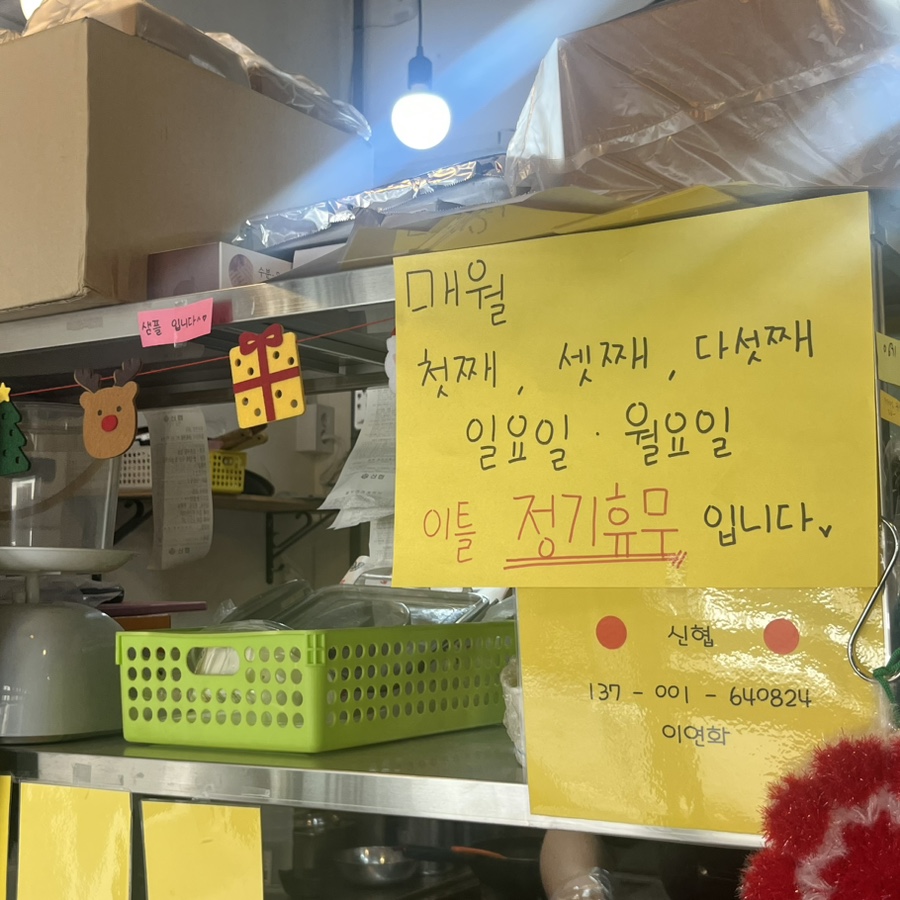 매월
첫째, 셋째, 다섯째
일요일 · 월요일
이틀 정기휴무 입니다
샘플 입니다^^
신협
137 - 001 - 640824
이연화